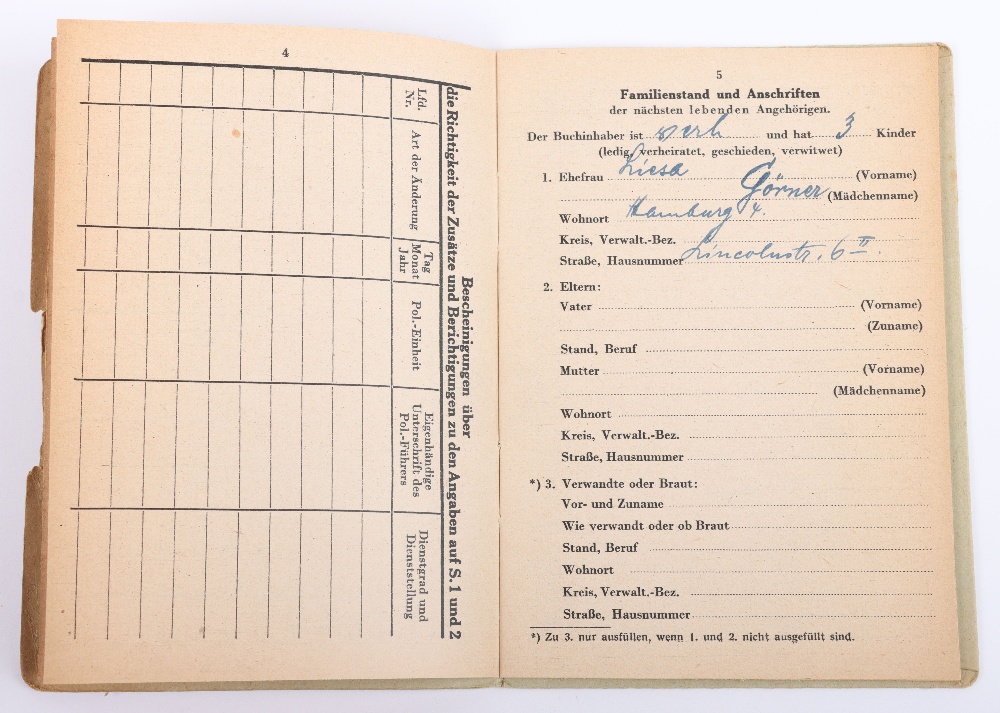 4
Bescheinigungen über
die Richtigkeit der Zusätze und Berichtigungen zu den Angaben auf S. 1 und 2
Lfd. Nr.
Art der Änderung
Tag Monat Jahr
Pol.-Einheit
Eigenhändige Unterschrift des Pol.-Führers
Dienstgrad und Dienststellung
5
Familienstand und Anschriften
der nächsten lebenden Angehörigen.
Der Buchinhaber ist verh und hat 3 Kinder
(ledig, verheiratet, geschieden, verwitwet)
1. Ehefrau Liesa (Vorname)
Görner (Mädchenname)
Wohnort Hamburg 4.
Kreis, Verwalt.-Bez.
Straße, Hausnummer Lincolnstr. 6 II.
2. Eltern:
Vater (Vorname)
(Zuname)
Stand, Beruf
Mutter (Vorname)
(Mädchenname)
Wohnort
Kreis, Verwalt.-Bez.
Straße, Hausnummer
*) 3. Verwandte oder Braut:
Vor- und Zuname
Wie verwandt oder ob Braut
Stand, Beruf
Wohnort
Kreis, Verwalt.-Bez.
Straße, Hausnummer
*) Zu 3. nur ausfüllen, wenn 1. und 2. nicht ausgefüllt sind.